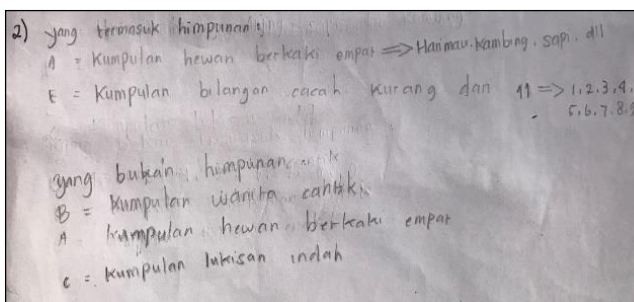 2) yang termasuk himpunan
A = Kumpulan hewan berkaki empat => Harimau. Kambing. sapi. dll
E = Kumpulan bilangan cacah kurang dari 11 => 1.2.3.4.
5.6.7.8.9
yang bukan himpunan
B = Kumpulan wanita cantik
A kumpulan hewan berkaki empat
C = Kumpulan lukisan indah